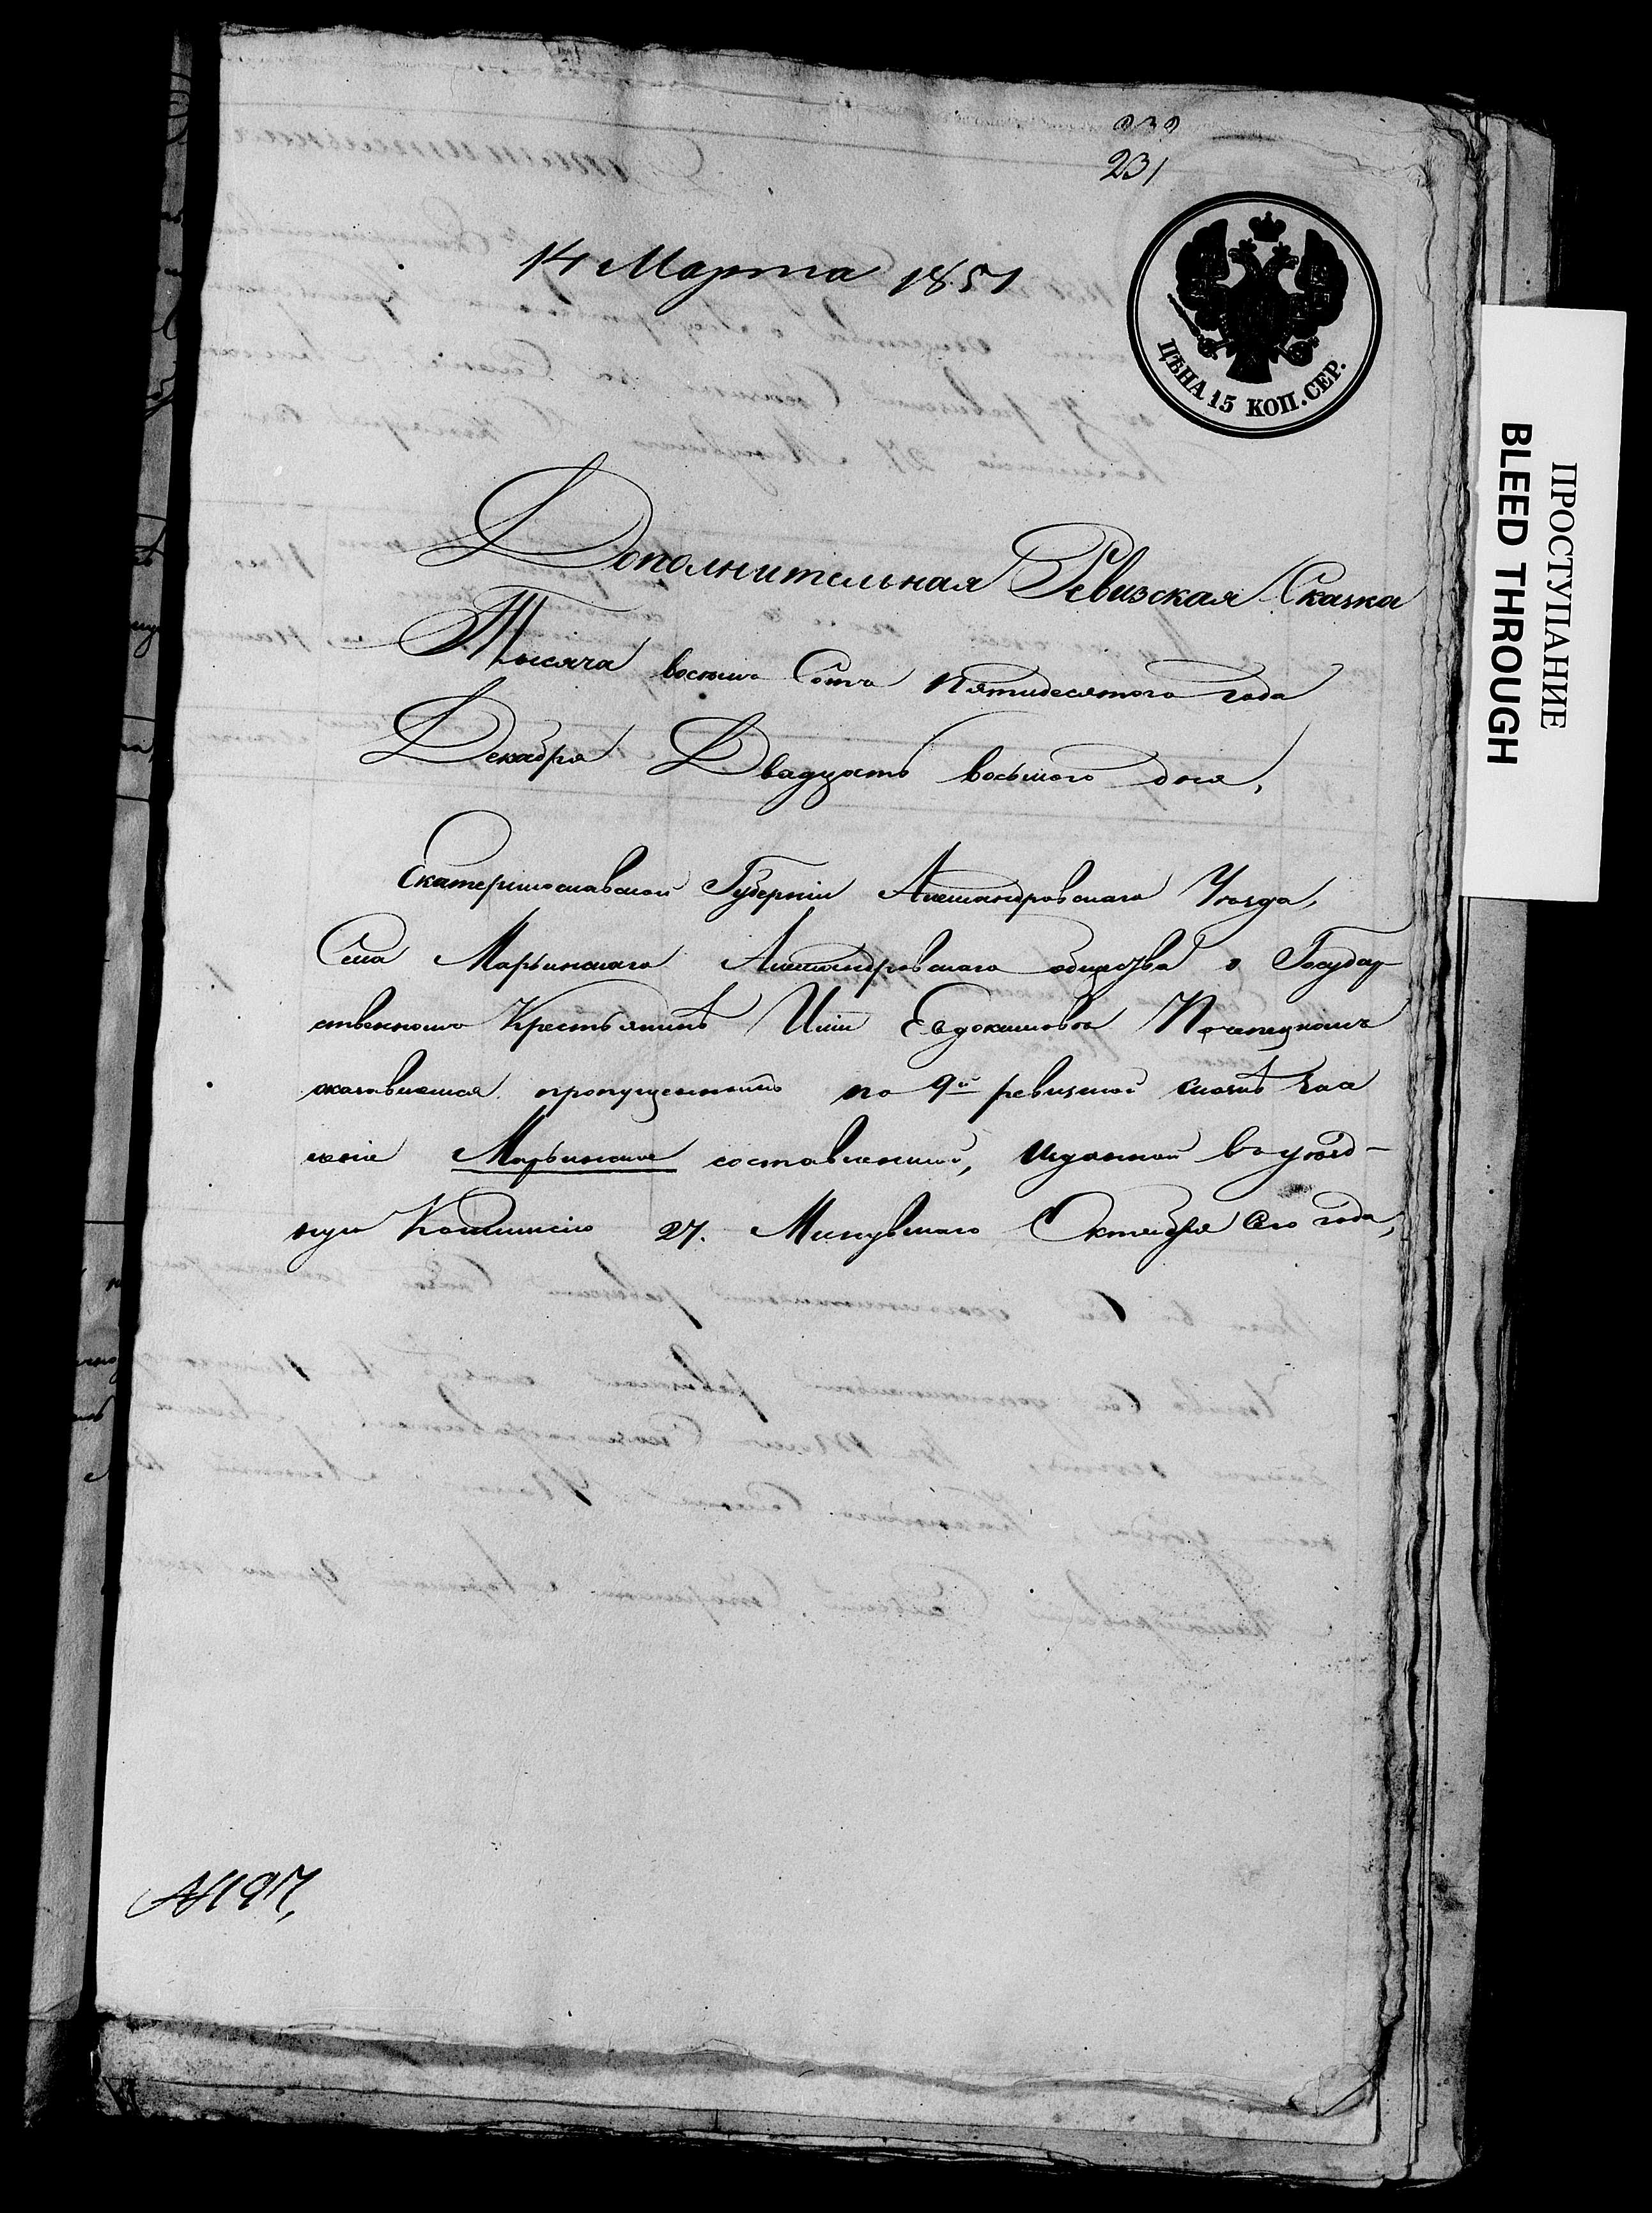 232
231
14 Марта 1851
ЦѢНА 15 КОП. СЕР.
Дополнительная Ревизская Сказка
Тысяча восемь Сотъ пятидесятого года
Декабря Двадцать восьмого дня,
Екатеринославской Губерніи Александровскаго Уѣзда,
Села Марьинскаго Александровскаго общества о Государ
ственномъ Крестьянинѣ Евдокимовѣ
оказавшемся пропущеннымъ по 9й ревизкой сказкѣ
Марьинское составленной, поданной въ уѣзд-
ную Коммисію 27. Минувшаго Октября сего года,
ПРОСТУПАНИЕ
BLEED THROUGH